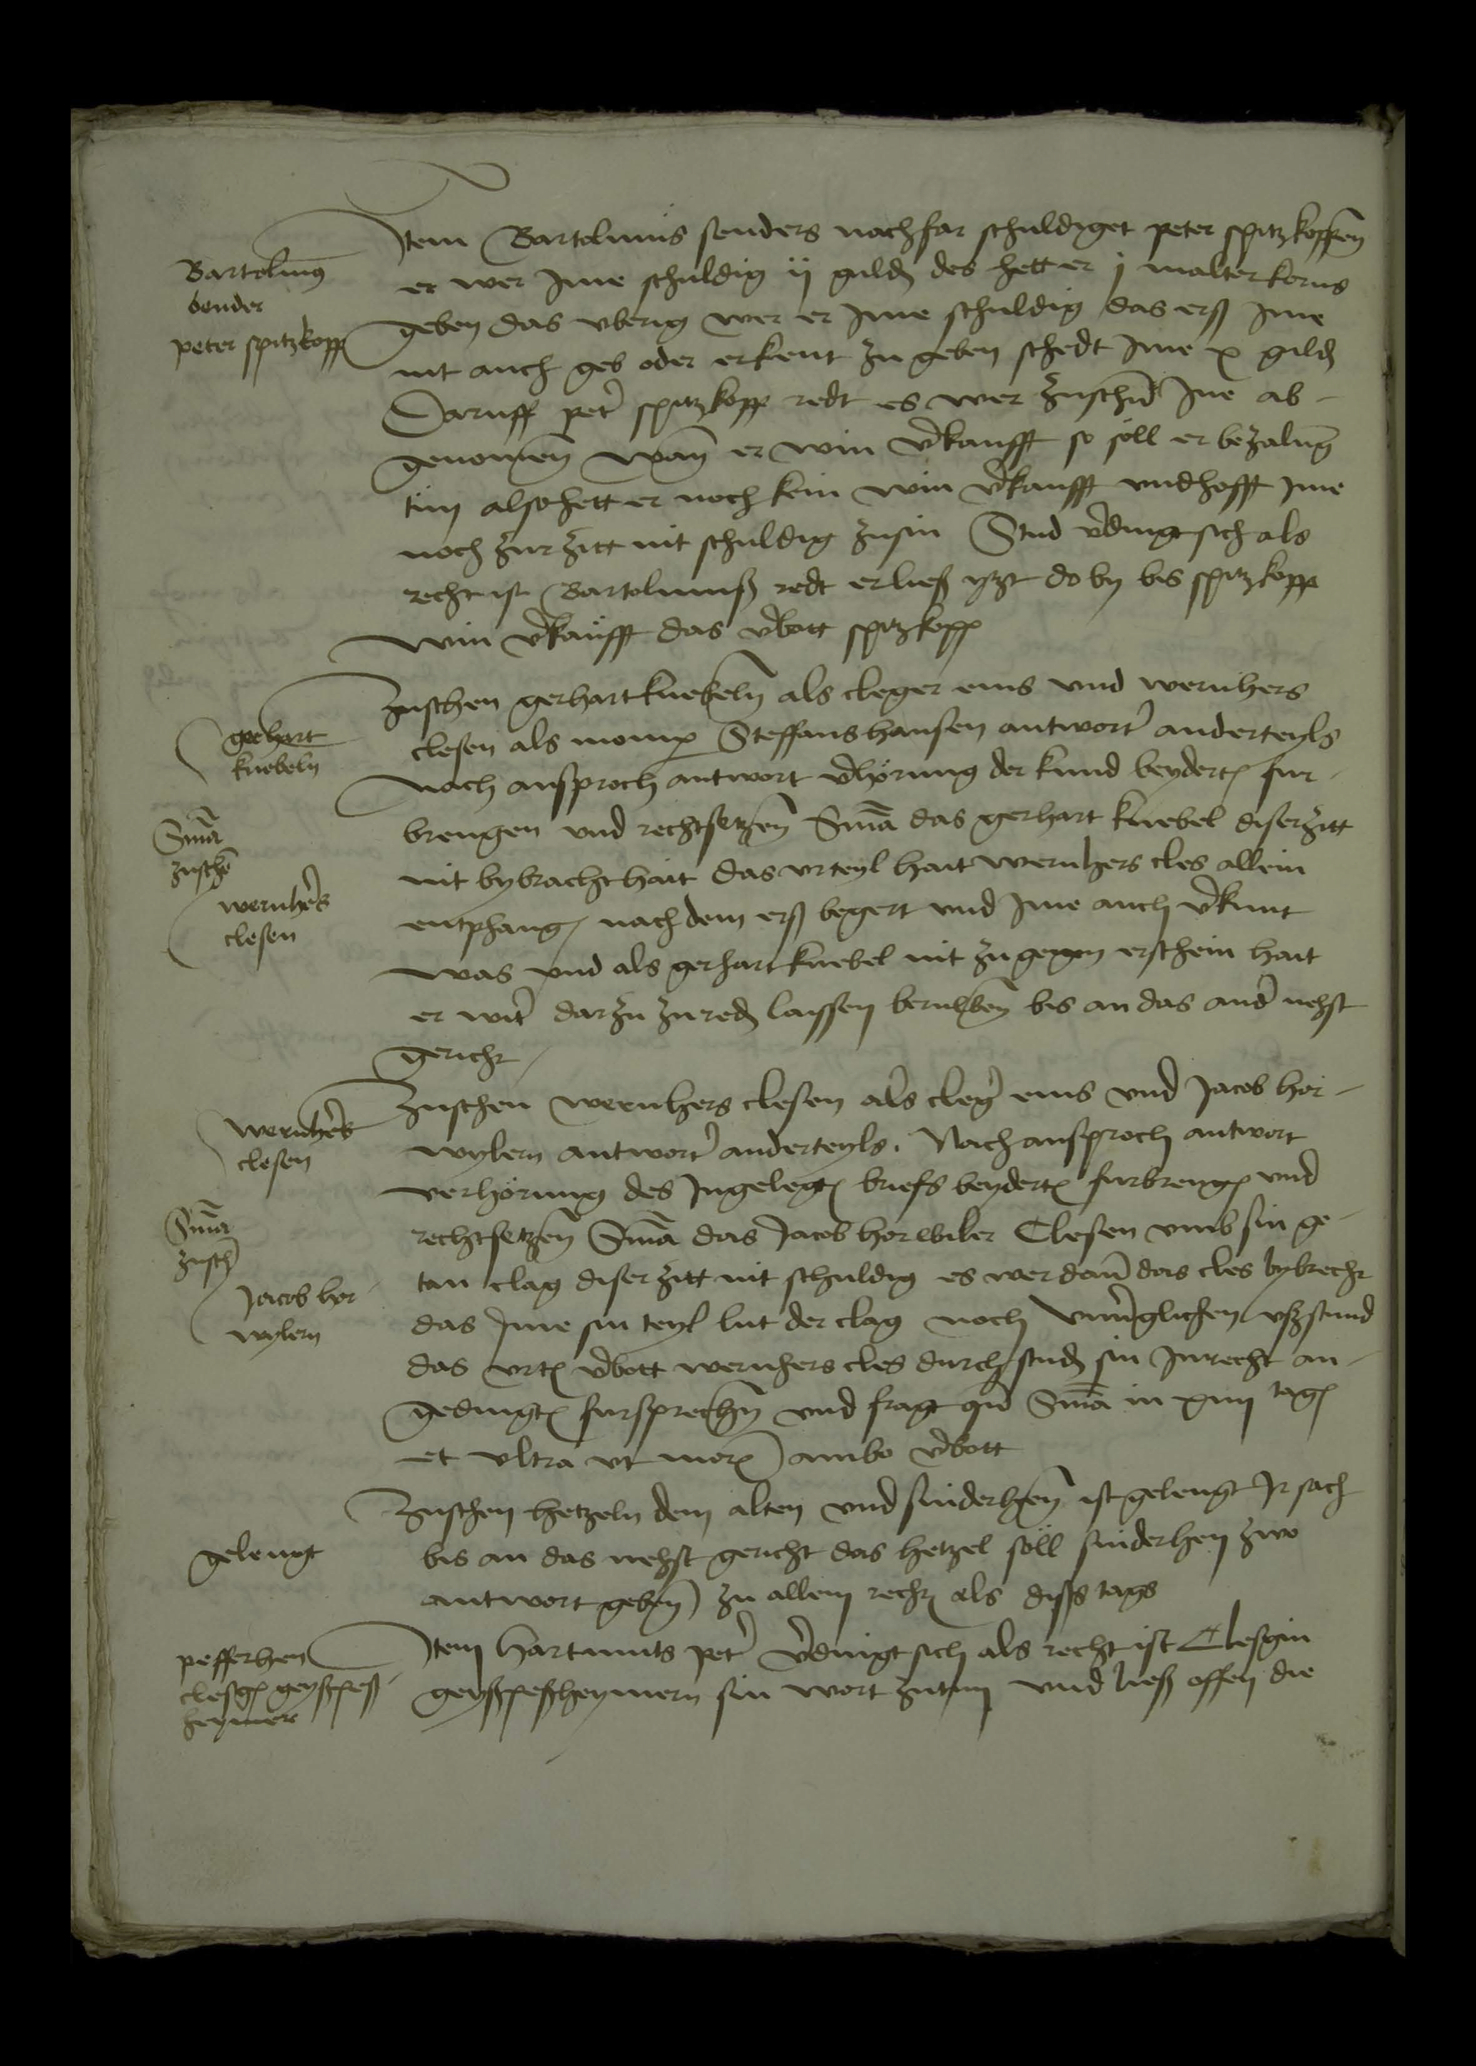 Bartolmus
bender
peter spitzkopp
Item Bartolmus henders nachfar schuldyget peter spitzkoppen
er wer Ime schuldig ij guld des hett er j malter korns
geben das uberig wer er Ime schuldig das erß Ime
nit auch geb oder erkent zu geben schedt Ime x guld
Daruff pet spitzkopp redt es wer zuschn Ine ab-
genomen wan er win vkaufft so soll er bezalung
tun also hett er noch kein win vkaufft und hofft Ime
noch zur zitt nit schuldig zusin Stud vdingt sich als
recht ist Bartolmuß redt er ließ yzt do by bis spitzkopp
win vkaufft das vbott spitzkopp
gerhart
knebeln
Sma
zusch
wernhers
clesen
Zuschen gerhart knebeln als cleger eins und wernhers
clesen als momp Steffans hansen antwort anderteyls
nach ansproch antwort vhorung der kund beydert fur-
brengen und rechtsetzen Sma das gerhart knebel diser zitt
nit bybracht hait das urteyl hait wernhers cles allein
entphang nach dem erß begert und Ime auch vkunt
was und als gerhart knebel nit zugegen erschein hait
er wit darzu zured laissen beruhen bis an das and nehst
gericht
wernhers
clesen
Sma
zusch
Jacob hor-
wylern
Zuschen wernhers clesen als cleg eins und Jacob hor-
wylern antwort anderteyls. Nach ansproch antwort
verhorung des Ingelegt briefs beydert furbreng und
rechtsetzen Sma das Jacob horwiler Clesen umb sin ge-
tan clag diser zitt nit schuldig es wer dan das cles bybrecht
das Ime sin teyl lut der clag noch unverglichen ußstund
das urt vbott wernhers cles durch stud sin Inrecht an-
gedingt fursprechen und fragt qn Sma in xiiij tag
et ultra ut mor ambo vbott
gelengt
Zuschen hetzeln dem alten und suderhen ist gelengt Ir sach
bis an das nehst gericht das hetzel soll suderhen zwo
antwort geben zu allem rech als diß tags
pefferhen
clesg geyspeß-
heymer
Item hartmuts pet vdingt sich als recht ist Clesgin
geyspeßheymern sin wort zutun und ließ offen die